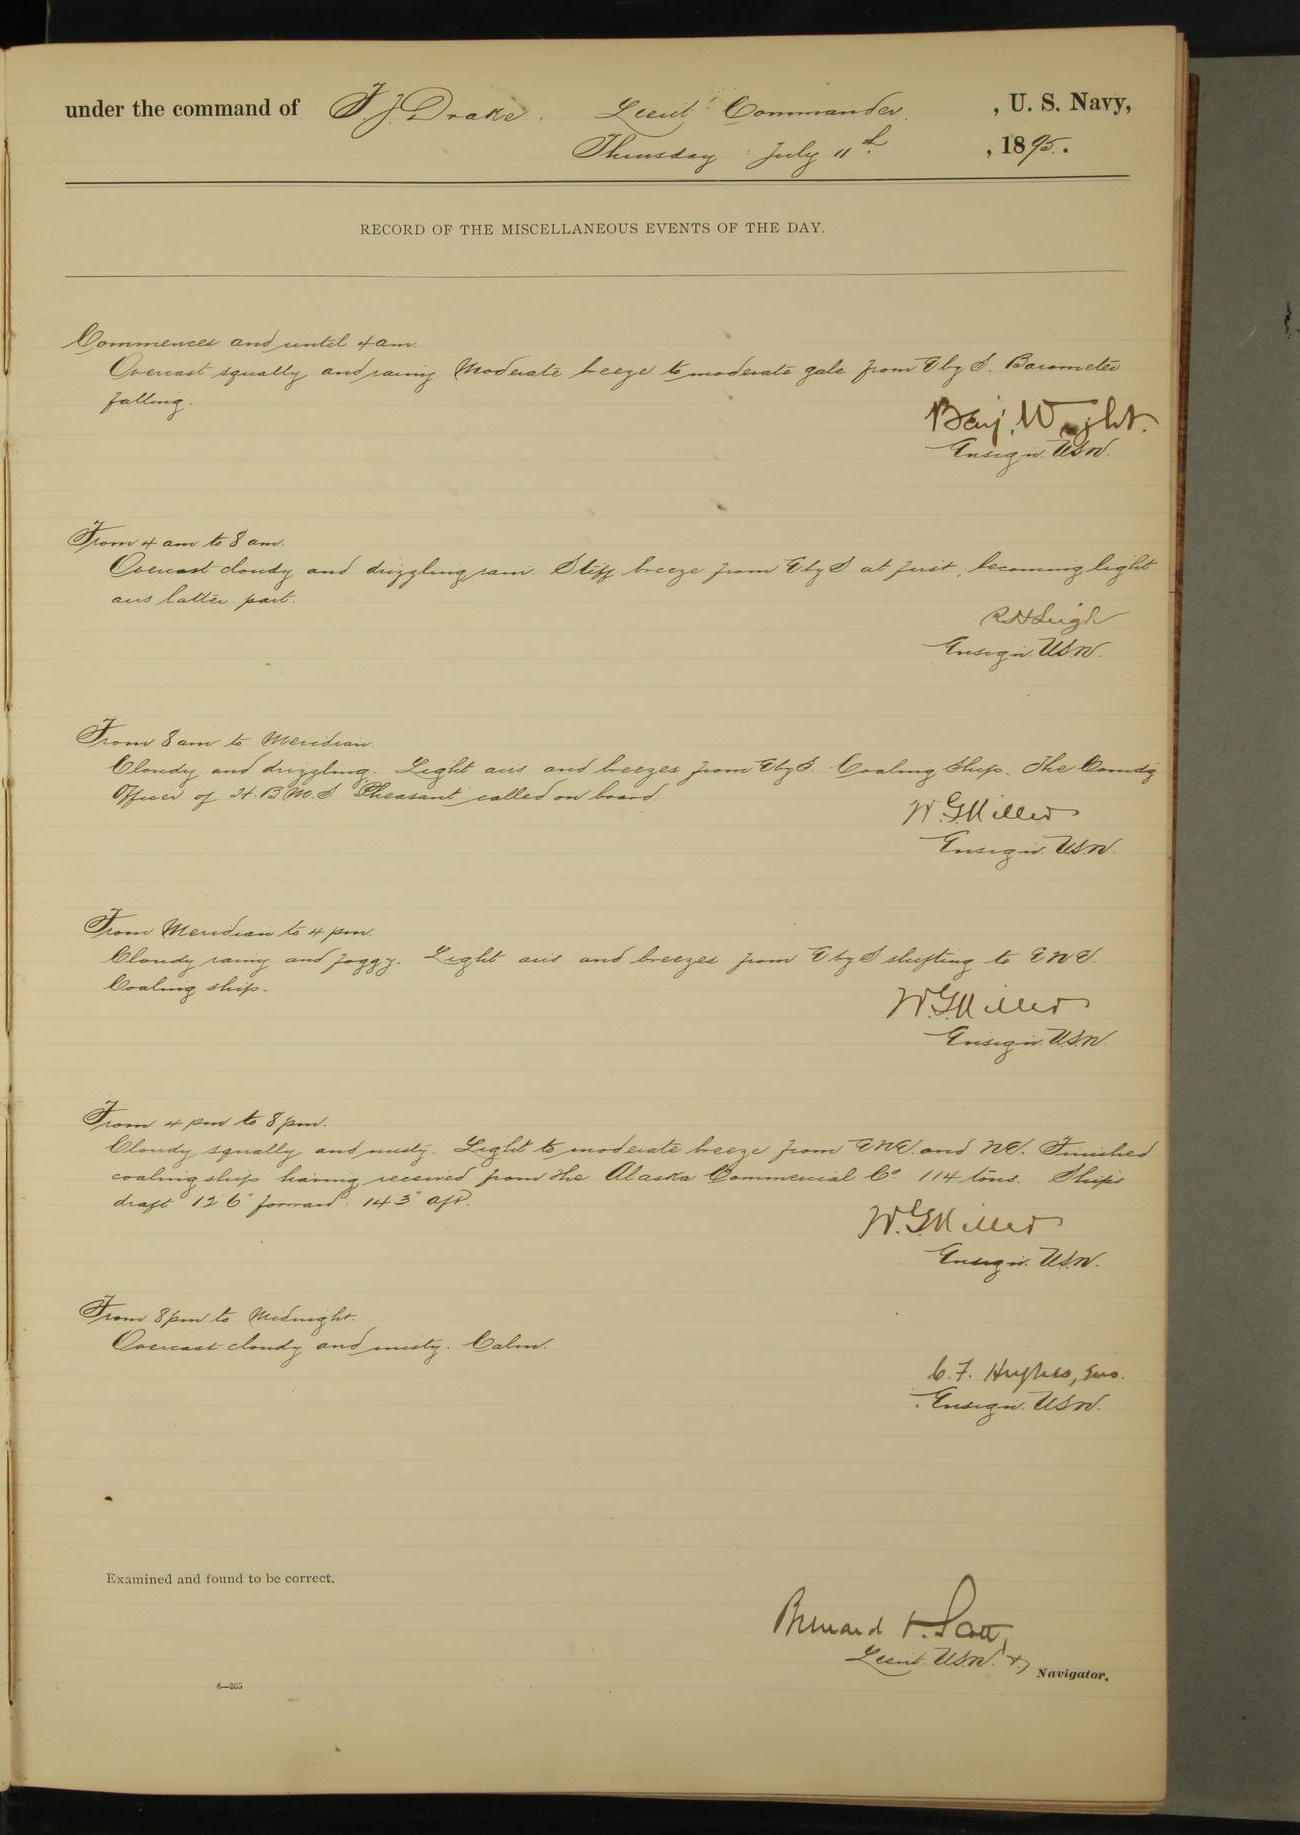 under the command of F. J. Drake. Lieut. Commander. , U. S. Navy,
Thursday July 11th , 1895.
RECORD OF THE MISCELLANEOUS EVENTS OF THE DAY.
Commences and until 4 am.
Overcast squally and rainy Moderate breeze to moderate gale from E by S. Barometer
falling.
Benj. Wright.
Ensign. U.S.N.
From 4 am to 8 am.
Overcast cloudy and drizzling rain. Stiff breeze from E by S at first, becoming light
airs latter part.
R H Leigh
Ensign. U.S.N.
From 8 am to Meridian.
Cloudy and drizzling. Light airs and breezes from E by S. Coaling Ship. The Comdg
Officer of H.B.M.S. "Pheasant" called on board.
W. G. Miller
Ensign. U.S.N.
From Meridian to 4 pm.
Cloudy rainy and foggy. Light airs and breezes from E by S shifting to ENE.
Coaling ship.
W. G. Miller
Ensign. U.S.N.
From 4 pm to 8 pm.
Cloudy squally and misty. Light to moderate breeze from ENE. and NE. Finished
coaling ship having received from the Alaska Commercial Co 114 tons. Ships
draft 12' 6" forward 14' 3" aft.
W. G. Miller
Ensign. U.S.N.
From 8 pm to Midnight.
Overcast cloudy and misty. Calm.
C. F. Hughes,
Ensign. U.S.N.
Examined and found to be correct.
Lieut. U.S.N. & Navigator.
4—205